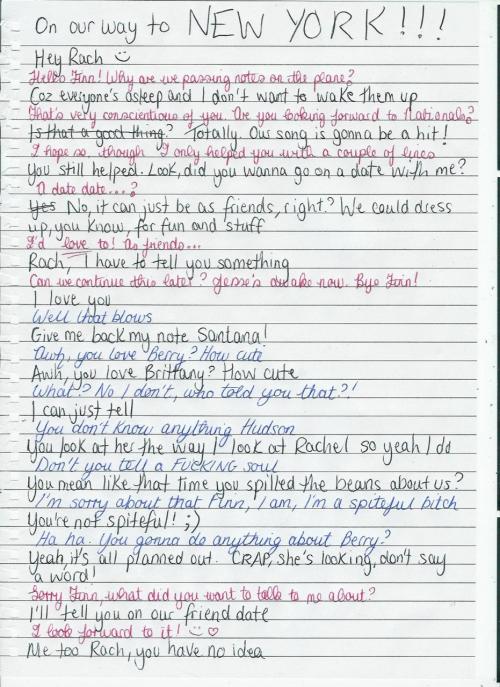 On our way to NEW YORK!!!
Hey Rach ☺
Hello Finn! Why are we passing notes on the plane?
Coz everyone's asleep and I don't want to wake them up
That's very conscientious of you. Are you looking forward to Nationals?
Is that a good thing? Totally. Our song is gonna be a hit!
I hope so, though I only helped you with a couple of lyrics
You still helped. Look, did you wanna go on a date with me?
A date date...?
Yes No, it can just be as friends, right? We could dress
up, you know, for fun and stuff
I'd love to! As friends...
Rach, I have to tell you something
Can we continue this later? Jesse's awake now. Bye Finn!
I love you
Well that blows
Give me back my note Santana!
Awh, you love Berry? How cute
Awh, you love Brittany? How cute
What? No I don't, who told you that?!
I can just tell
You don't know anything Hudson
You look at her the way I look at Rachel so yeah I do
Don't you tell a FUCKING soul
You mean like that time you spilled the beans about us?
I'm sorry about that Finn, I am, I'm a spiteful bitch
You're not spiteful! ;)
Ha ha. You gonna do anything about Berry?
Yeah, it's all planned out. CRAP, she's looking, don't say
a word!
Sorry Finn, what did you want to talk to me about?
I'll tell you on our friend date
I look forward to it! ☺♡
Me too Rach, you have no idea